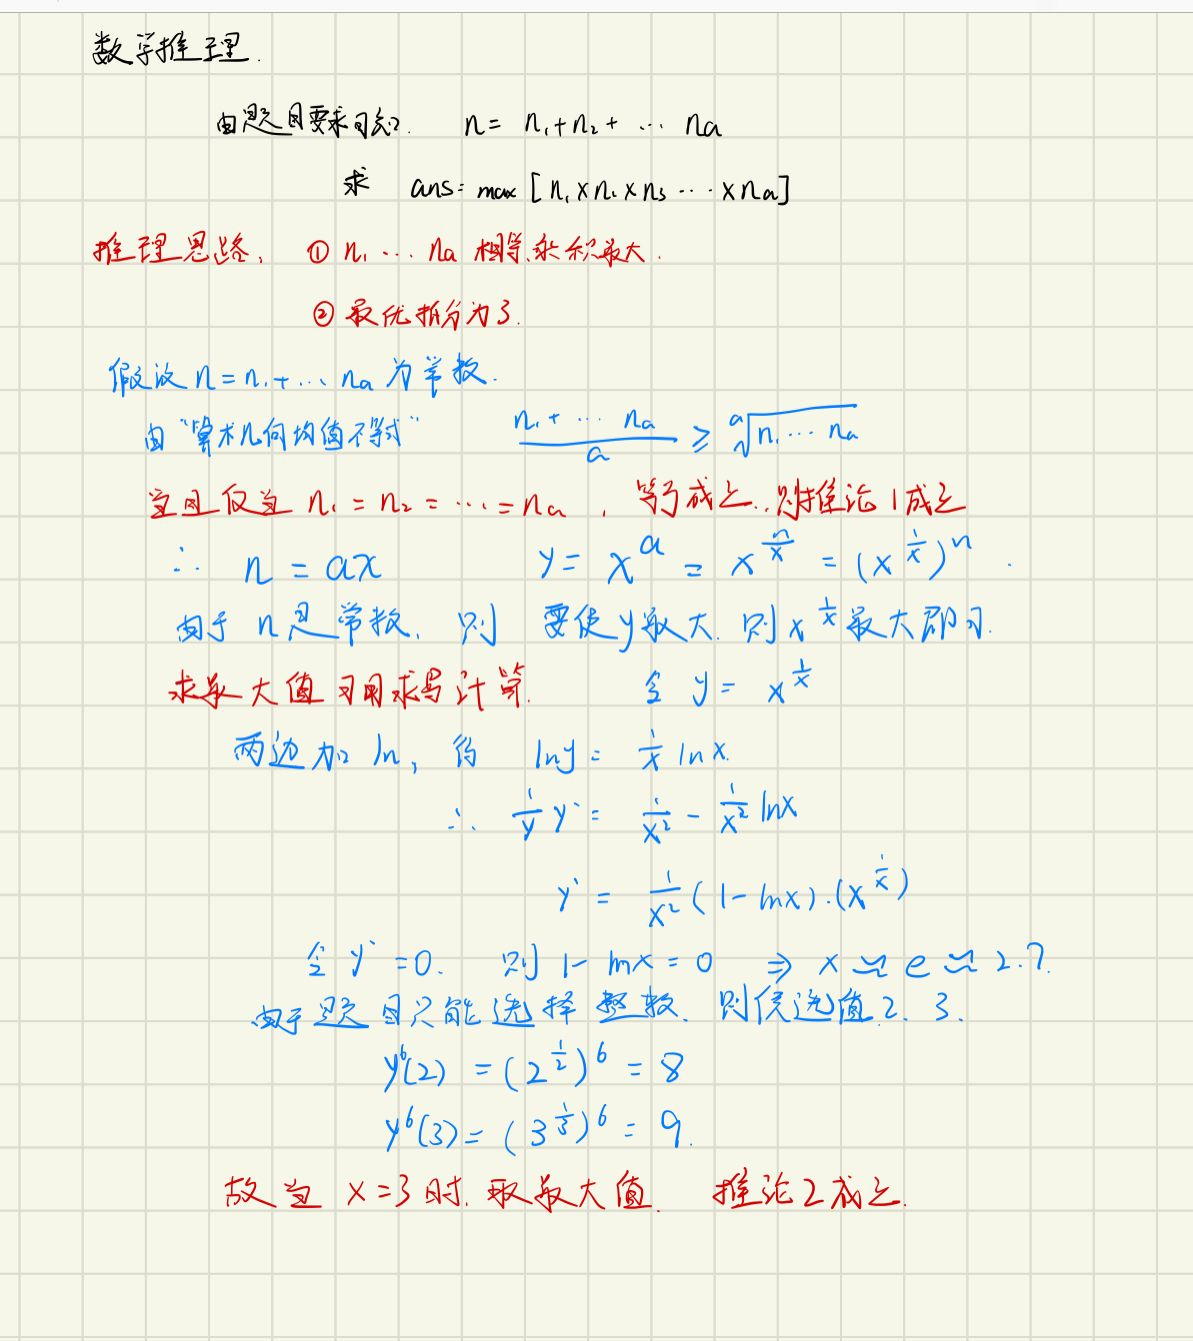 数学推理.
由题目要求可知. n = n₁+n₂+ … nₐ
求 ans = max [n₁×n₂×n₃ … ×nₐ]
推理思路: ① n₁ … nₐ 相等,乘积最大.
② 最优拆分为3.
假设 n = n₁+… nₐ 为常数.
由"算术几何均值不等式" (n₁+ … nₐ)/a ≥ ᵃ√(n₁ … nₐ)
当且仅当 n₁ = n₂ = … = nₐ, 等号成立. 则推论1成立
∴ n = ax y = x^a = x^(n/x) = (x^(1/x))^n.
由于 n是常数, 则 要使y最大. 则 x^(1/x) 最大即可.
求最大值可用求导计算. 令 y = x^(1/x)
两边加 ln, 得 lny = 1/x lnx.
∴ 1/y y' = 1/x² - 1/x² lnx
y' = 1/x² (1-lnx)·(x^(1/x))
令 y' = 0. 则 1- lnx = 0 ⇒ x ≈ e ≈ 2.7.
由于题目只能选择整数. 则候选值2. 3.
y⁶(2) = (2^(1/2))⁶ = 8
y⁶(3) = (3^(1/3))⁶ = 9.
故当 x=3时. 取最大值. 推论2成立.